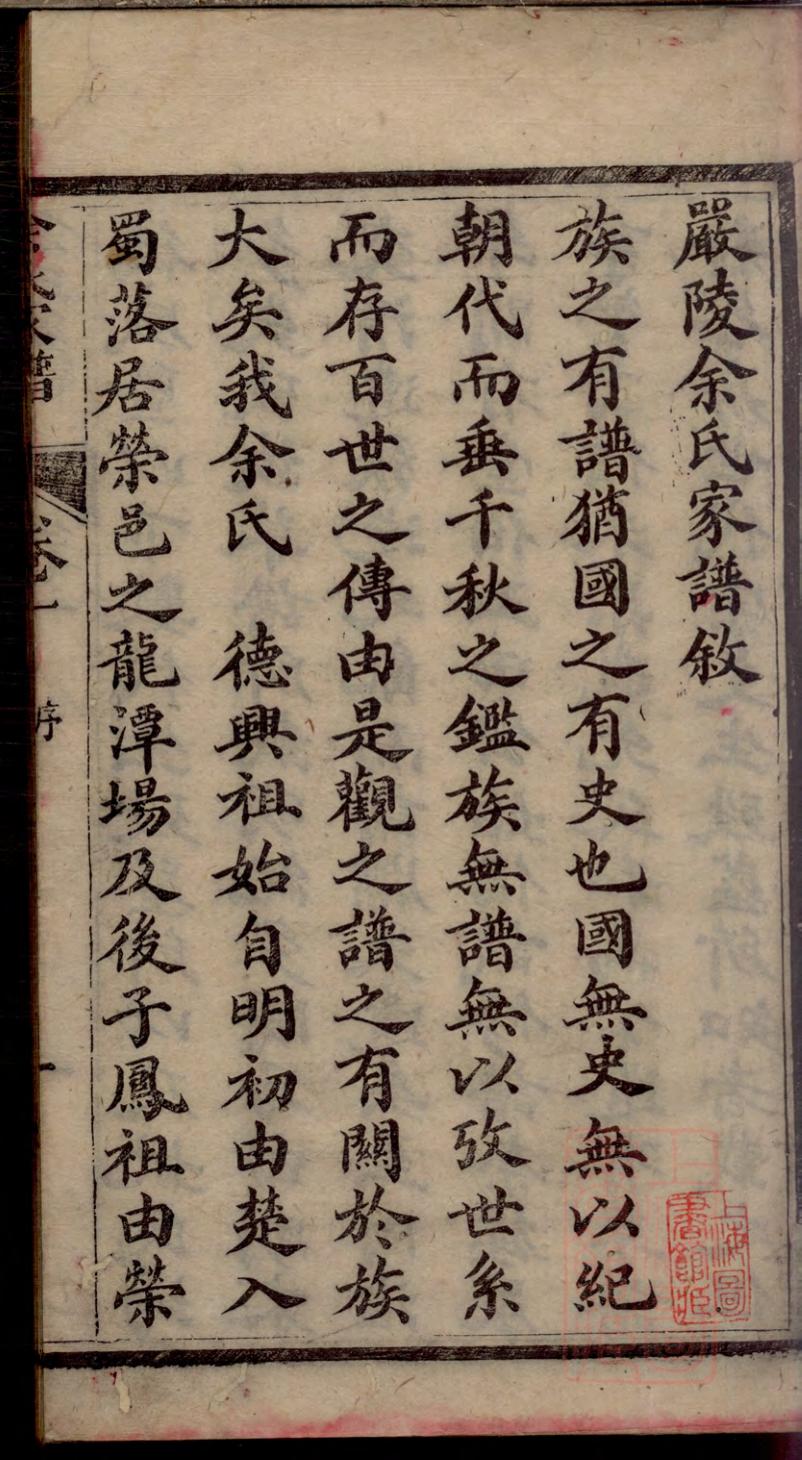 嚴陵余氏家譜敘
族之有譜猶國之有史也國無史無以紀
朝代而垂千秋之鑑族無譜無以攷世系
而存百世之傳由是觀之譜之有關於族
大矣我余氏　德興祖始自明初由楚入
蜀落居榮邑之龍潭場及後子鳳祖由榮
余氏家譜 卷一 序 一
上海圖
書館藏